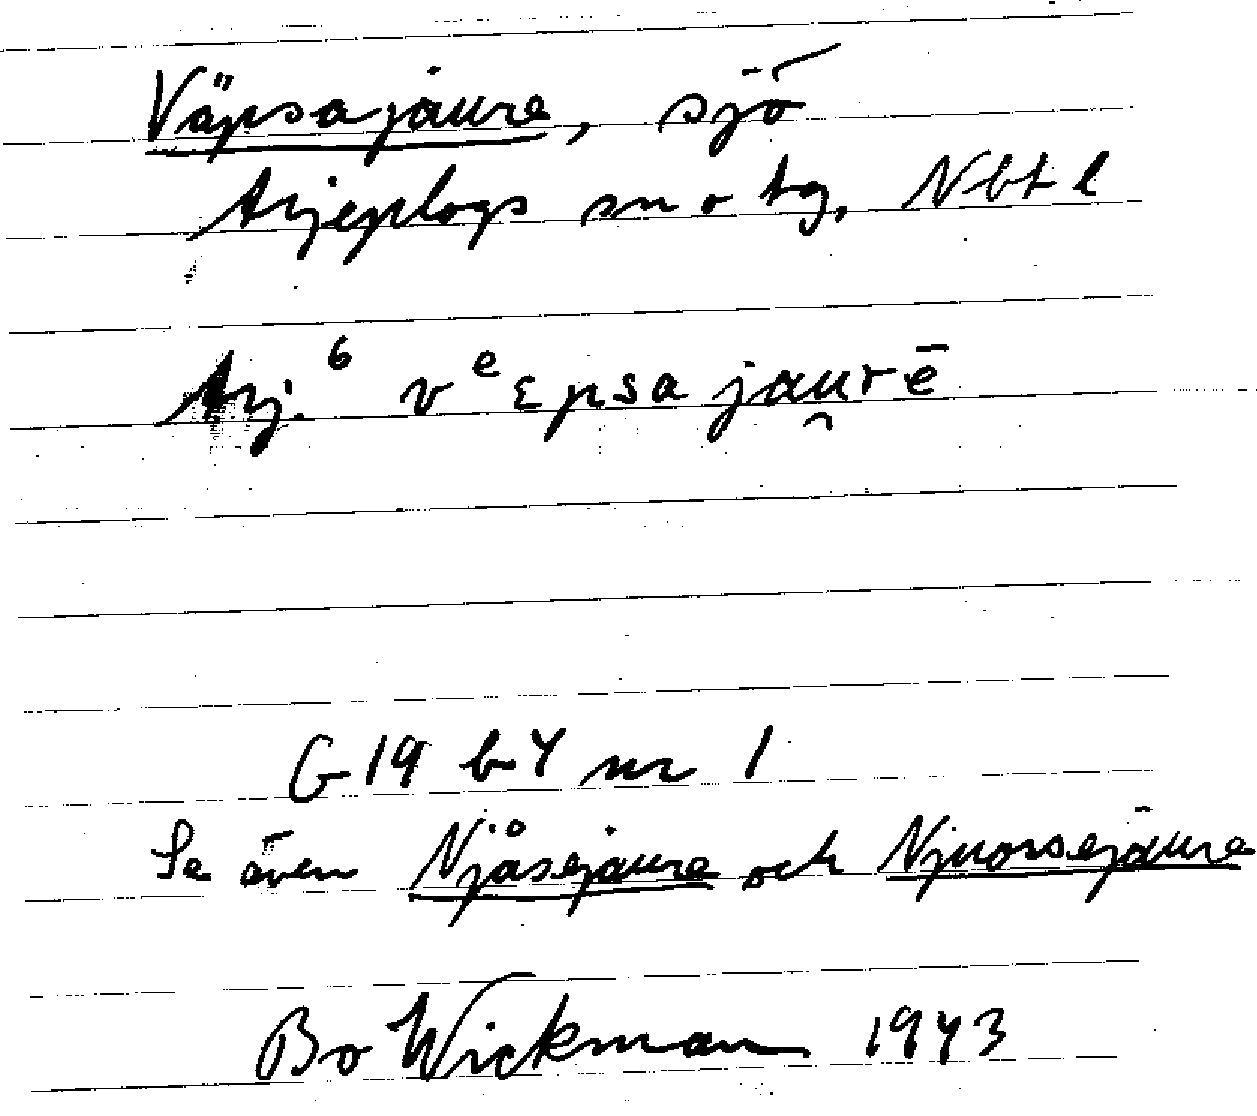 Väpsajaure, sjö
Arjeplogs sn o tg, Nbtl
Arj.⁶ vᵉεpsajau̯rē
G19 b4 nr 1
Se även Njåsejaure och Njuorsejaure
Bo Wickman 1943